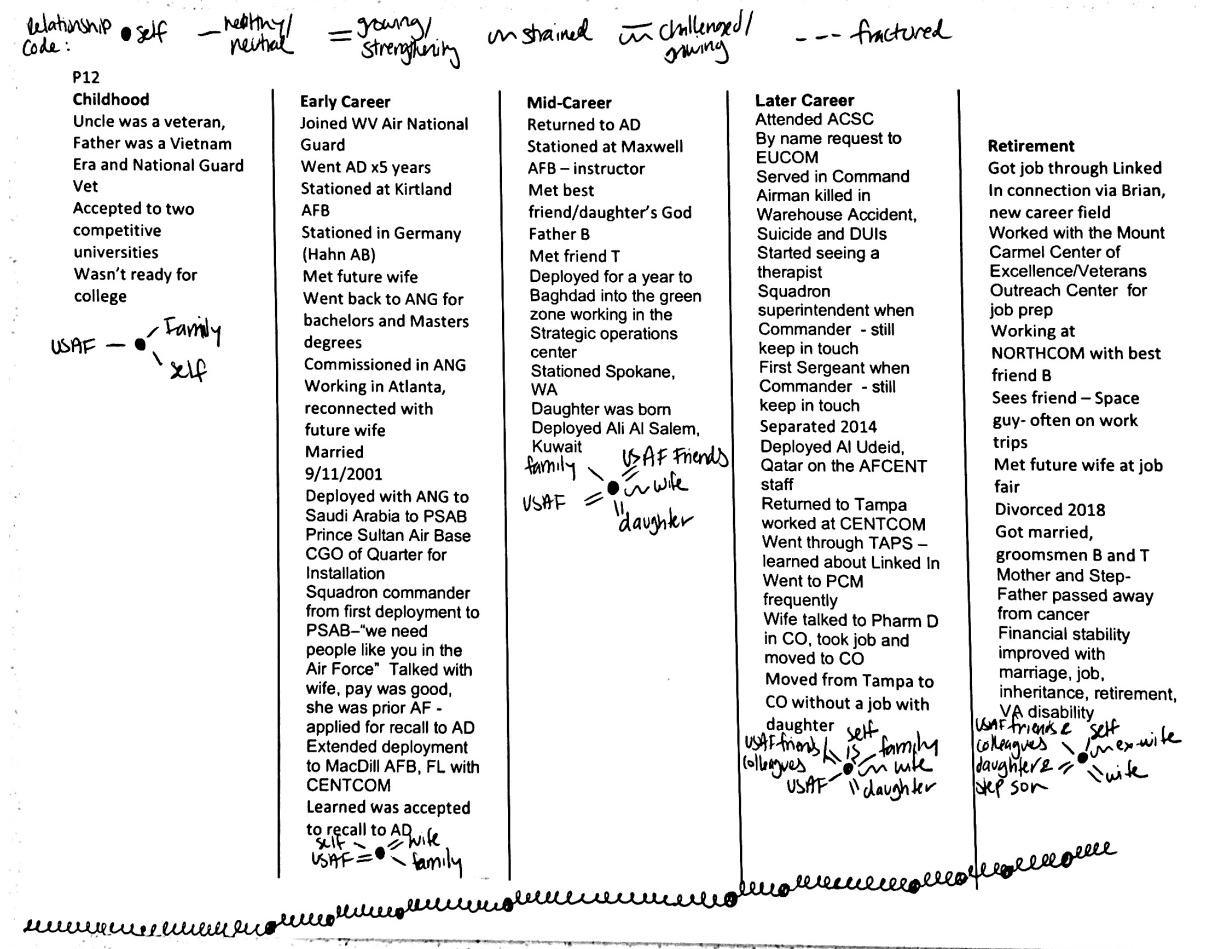 Relationship code: • self — healthy/neutral = growing/strengthening strained challenged/growing --- fractured
P12
Childhood
Uncle was a veteran,
Father was a Vietnam
Era and National Guard
Vet
Accepted to two
competitive
universities
Wasn't ready for
college
Family
USAF
self
Early Career
Joined WV Air National
Guard
Went AD x5 years
Stationed at Kirtland
AFB
Stationed in Germany
(Hahn AB)
Met future wife
Went back to ANG for
bachelors and Masters
degrees
Commissioned in ANG
Working in Atlanta,
reconnected with
future wife
Married
9/11/2001
Deployed with ANG to
Saudi Arabia to PSAB
Prince Sultan Air Base
CGO of Quarter for
Installation
Squadron commander
from first deployment to
PSAB–"we need
people like you in the
Air Force" Talked with
wife, pay was good,
she was prior AF -
applied for recall to AD
Extended deployment
to MacDill AFB, FL with
CENTCOM
Learned was accepted
to recall to AD
self wife
USAF family
Mid-Career
Returned to AD
Stationed at Maxwell
AFB – instructor
Met best
friend/daughter's God
Father B
Met friend T
Deployed for a year to
Baghdad into the green
zone working in the
Strategic operations
center
Stationed Spokane,
WA
Daughter was born
Deployed Ali Al Salem,
Kuwait
family USAF Friends
USAF wife
daughter
Later Career
Attended ACSC
By name request to
EUCOM
Served in Command
Airman killed in
Warehouse Accident,
Suicide and DUIs
Started seeing a
therapist
Squadron
superintendent when
Commander - still
keep in touch
First Sergeant when
Commander - still
keep in touch
Separated 2014
Deployed Al Udeid,
Qatar on the AFCENT
staff
Returned to Tampa
worked at CENTCOM
Went through TAPS –
learned about Linked In
Went to PCM
frequently
Wife talked to Pharm D
in CO, took job and
moved to CO
Moved from Tampa to
CO without a job with
daughter
self
USAF friends/ family
colleagues wife
USAF daughter
Retirement
Got job through Linked
In connection via Brian,
new career field
Worked with the Mount
Carmel Center of
Excellence/Veterans
Outreach Center for
job prep
Working at
NORTHCOM with best
friend B
Sees friend – Space
guy- often on work
trips
Met future wife at job
fair
Divorced 2018
Got married,
groomsmen B and T
Mother and Step-
Father passed away
from cancer
Financial stability
improved with
marriage, job,
inheritance, retirement,
VA disability
USAF friends & self
colleagues ex-wife
daughter & wife
step son